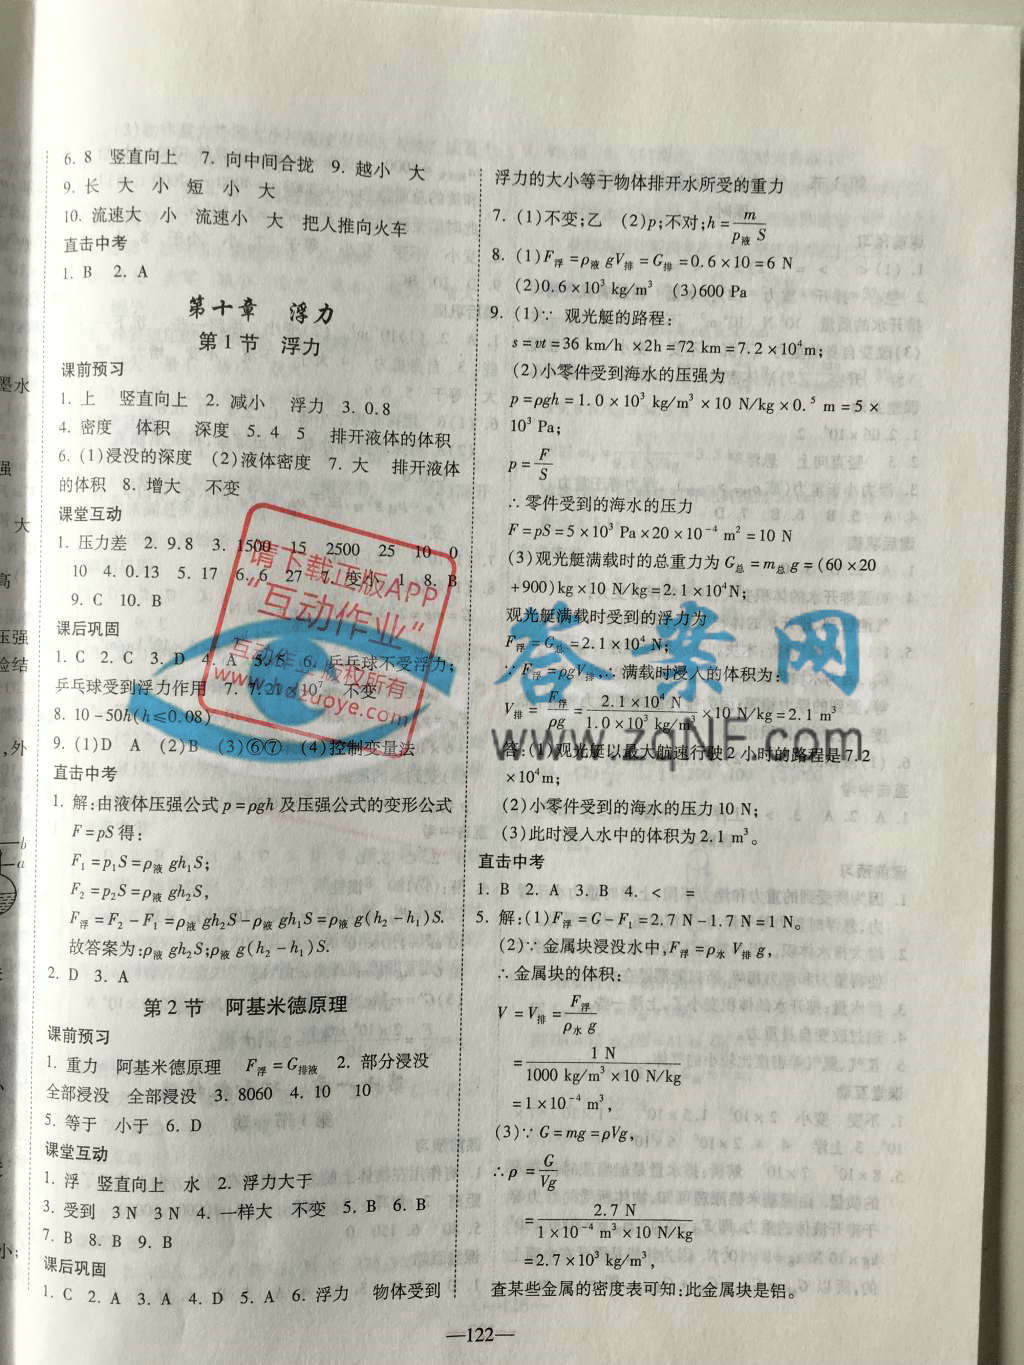 6. 8 竖直向上 7. 向中间合拢 9. 越小 大
9. 长 大 小 短 小 大
10. 流速大 小 流速小 大 把人推向火车
直击中考
1. B 2. A
第十章 浮力
第1节 浮力
课前预习
1. 上 竖直向上 2. 减小 浮力 3. 0.8
4. 密度 体积 深度 5. 4 5 排开液体的体积
6. (1)浸没的深度 (2)液体密度 7. 大 排开液体
的体积 8. 增大 不变
课堂互动
1. 压力差 2. 9.8 3. 1500 15 2500 25 10 0
10 4. 0.13 5. 17 6. 6 27 7. 变小 1 8. B
9. C 10. B
课后巩固
1. C 2. C 3. D 4. A 5. B 6. 乒乓球不受浮力;
乒乓球受到浮力作用 7. 不变
8. 10-50h(h≤0.08)
9. (1)D A (2)B (3)⑥⑦ (4)控制变量法
直击中考
1. 解:由液体压强公式 p=ρgh 及压强公式的变形公式
F=pS得:
F₁=p₁S=ρ液 gh₁S;
F₂=p₂S=ρ液 gh₂S,
F浮=F₂-F₁=ρ液 gh₂S-ρ液 gh₁S=ρ液 g(h₂-h₁)S.
故答案为:ρ液 gh₂S;ρ液 g(h₂-h₁)S.
2. D 3. A
第2节 阿基米德原理
课前预习
1. 重力 阿基米德原理 F浮=G排液 2. 部分浸没
全部浸没 全部浸没 3. 8060 4. 10 10
5. 等于 小于 6. D
课堂互动
1. 浮 竖直向上 水 2. 浮力大于
3. 受到 3 N 3 N 4. 一样大 不变 5. B 6. B
7. B 8. B 9. B
课后巩固
1. C 2. A 3. A 4. D 5. A 6. 浮力 物体受到
浮力的大小等于物体排开水所受的重力
7. (1)不变;乙 (2)p;不对;h=m/(ρ液 S)
8. (1)F浮=ρ液 gV排=G排=0.6×10=6 N
(2)0.6×10³ kg/m³ (3)600 Pa
9. (1)∵ 观光艇的路程:
s=vt=36 km/h ×2h=72 km=7.2×10⁴m;
(2)小零件受到海水的压强为
p=ρgh=1.0×10³ kg/m³×10 N/kg×0.5 m=5×
10³ Pa;
p=F/S
∴ 零件受到的海水的压力
F=pS=5×10³ Pa×20×10⁻⁴ m²=10 N
(3)观光艇满载时的总重力为G总=m总g=(60×20
+900)kg×10 N/kg=2.1×10⁴N;
观光艇满载时受到的浮力为
F浮=G总=2.1×10⁴ N;
∵F浮=ρgV排,∴满载时浸入的体积为:
V排=F浮/ρg=2.1×10⁴ N/(1.0×10³ kg/m³×10 N/kg)=2.1 m³
答:(1)观光艇以最大航速行驶2小时的路程是7.2
×10⁴m;
(2)小零件受到的海水的压力10 N;
(3)此时浸入水中的体积为2.1 m³。
直击中考
1. B 2. A 3. B 4. < =
5. 解:(1)F浮=G-F₁=2.7 N-1.7 N=1 N。
(2)∵金属块浸没水中,F浮=ρ水 V排 g,
∴金属块的体积:
V=V排=F浮/(ρ水 g)
=1 N/(1000 kg/m³×10 N/kg)
=1×10⁻⁴ m³,
(3)∵G=mg=ρVg,
∴ρ=G/Vg
=2.7 N/(1×10⁻⁴ m³×10 N/kg)
=2.7×10³ kg/m³,
查某些金属的密度表可知:此金属块是铝。
—122—
请下载正版APP
“互动作业”
互动作业 版权所有
答案网
www.zqNF.com
墨水
强
大
高
压强
验结
,外
b
a
小;